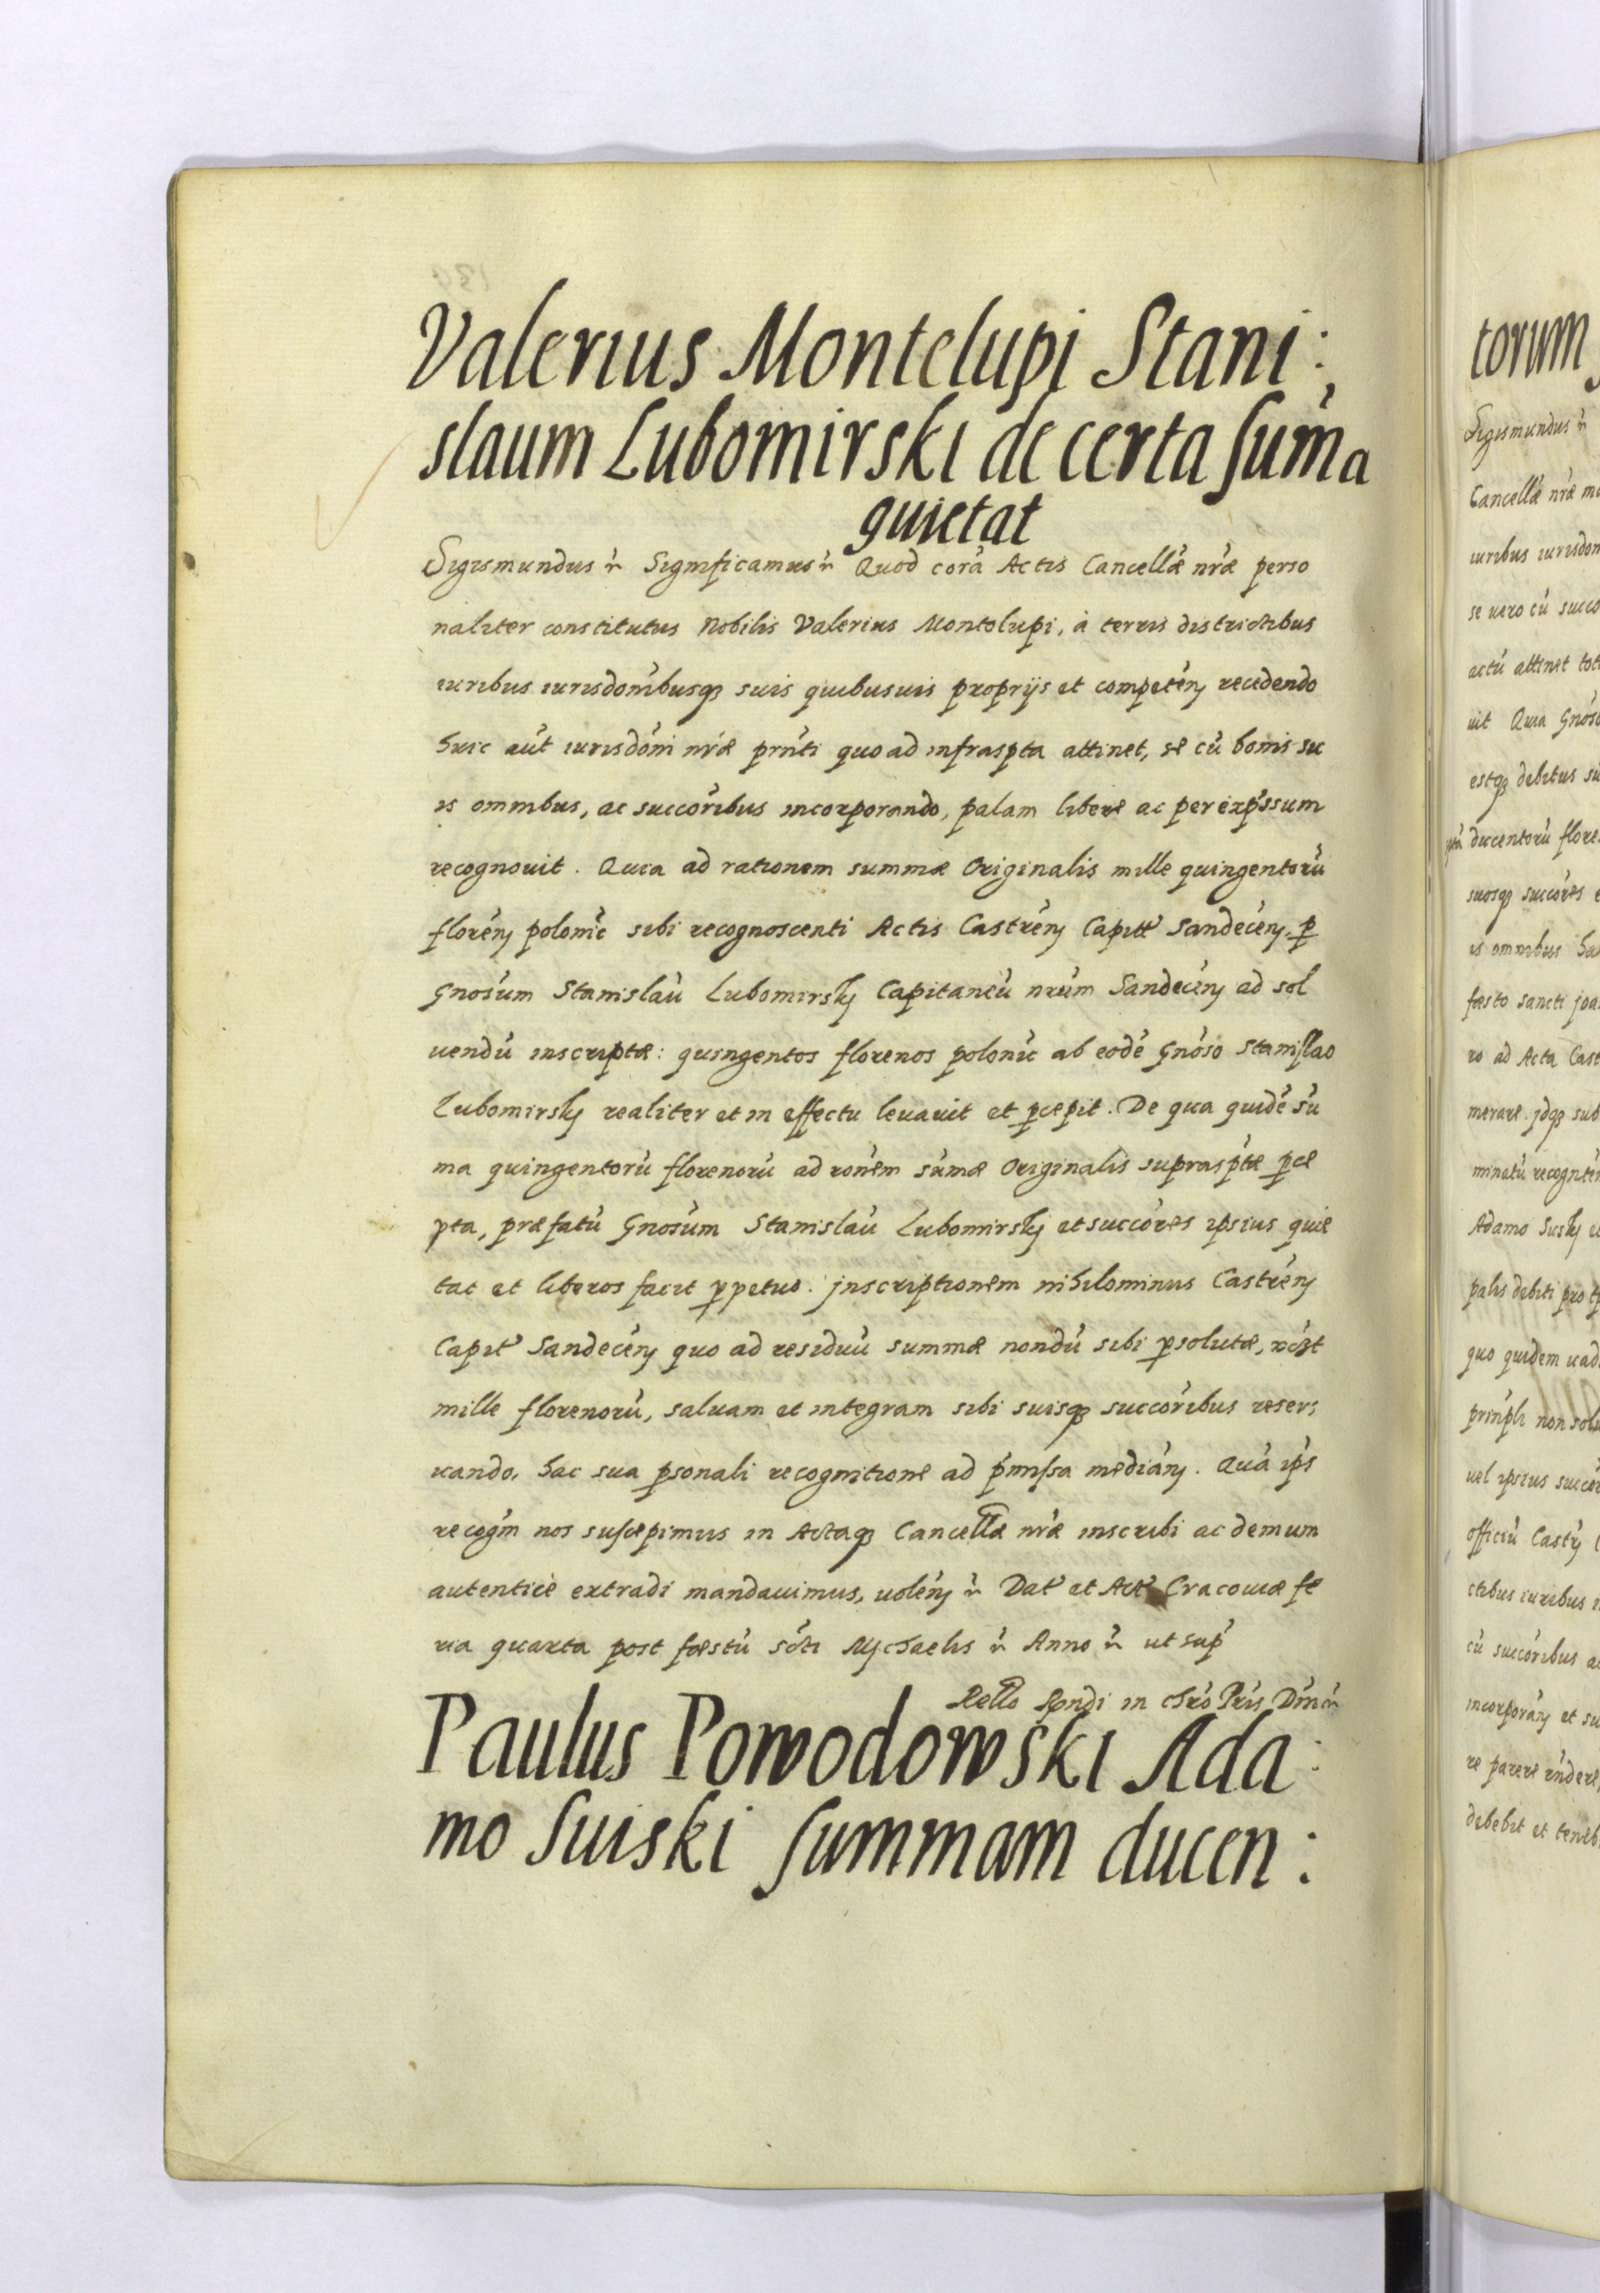 Valerius Montelupi Stani:
slaum Lubomirski de certa sum̃a
quietat
Sigismundus ẽ Significamus ẽ Quod corã Actis Cancellæ nræ perso
naliter constitutus Nobilis Valerius Montolupi, à terris districtibus
iuribus iurisdonibusq suis quibusuis proprijs et competeñ recedendo
huic aut iurisdoni nræ prnti quo ad infraspta attinet, se cũ bonis su
is omnibus, ac succoribus incorporando, palam libere ac per expssum
recognouit. Quia ad rationem summæ Originalis mille quingentorũ
floreñ polonic sibi recognoscenti Actis Castreñ Capitt Sandeceñ. p
Gnosum Stanislaũ Lubomirskj Capitaneũ nrum Sandeceñ ad sol
uendũ inscriptæ: quingentos florenos polonic ab eodẽ Gnoso Stanislao
Lubomirskj realiter et in effectu leuauit et pcepit. De qua quidẽ sũ
ma quingentorũ florenorũ ad ronem sumæ Originalis suprasptæ pce
pta, præfatũ Gnosum Stanislaũ Lubomirskj et succores ipsius quie
tat et liberos facit ppetuo. jnscriptionem nihilominus Castreñ
Capit Sandeceñ quo ad residuũ summæ nondũ sibi psolutæ,
mille florenorũ, saluam et integram sibi suisq succoribus reser:
uando, hac sua psonali recognitione ad pmissa mediañ. Quã ips
recogm nos suscepimus in Actaq Cancellæ nræ inscribi ac demum
autentice extradi mandauimus, uoleñ ẽ Dat et Act Cracouiæ fe
ria quarta post fæstũ scti Mjchaelis ẽ Anno ẽ ut sup
Rello in
Paulus Powodowski Ada:
mo Suiski summam ducen:
torum
Sigismundus ẽ
Cancellæ nræ
iuribus
se uero cũ
actũ attinet
uit Quia
estq debitus
ducentorũ
suosq succores
is omnibus
fæsto sancti
ro ad Acta
merare. jdq
minatũ
Adamo Suskj
palis debiti pro
quo quidem
non
uel ipsius
officiũ
ctibus iuribus
cũ succoribus
incorporañ et
re parere
debebit et